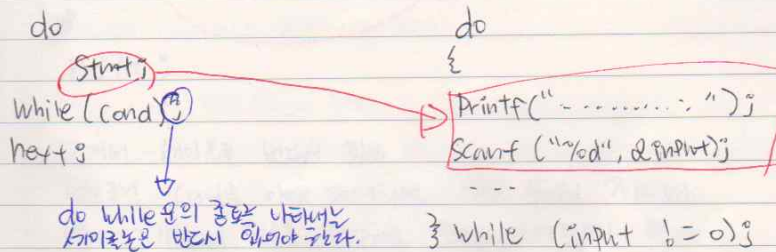 do
Stmt;
while (cond);
next;
do while문의 종료를 나타내는
세미콜론은 반드시 있어야 한다.
do
{
Printf("- - - - - - - - - - ");
Scanf ("%d", &input);
- - - -
} while (input != 0);